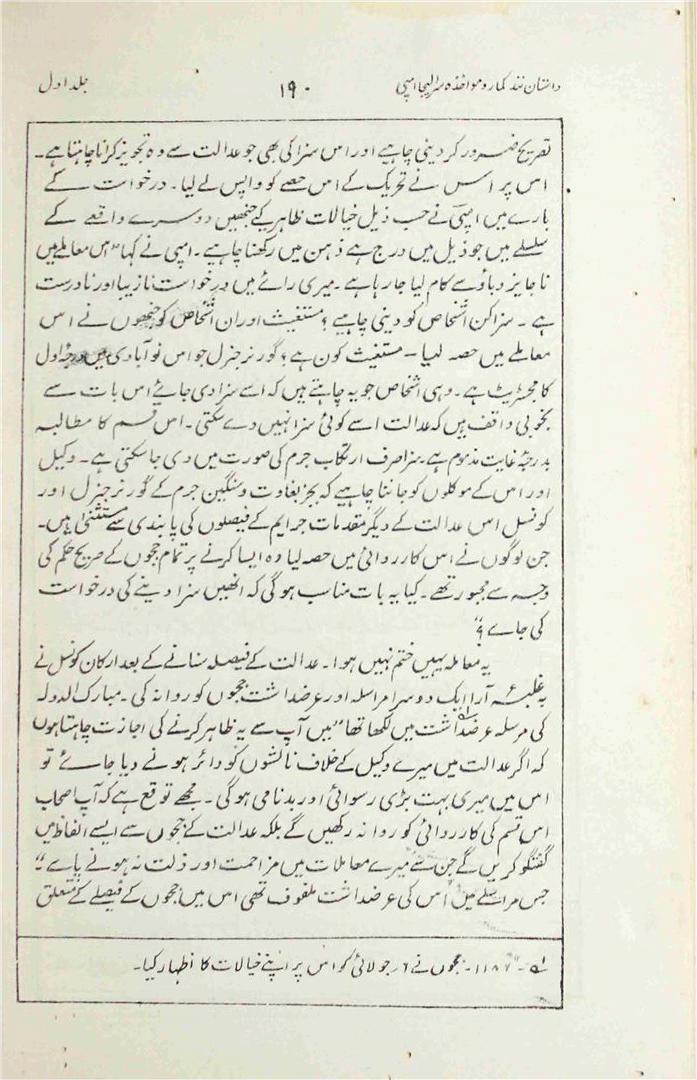 داستان نند کمار و مواخذہ سر الیجا امپی
۱۹۰
جلد اول
تصریح ضرور کر دینی چاہیے اور اس سزا کی بھی جو عدالت سے وہ تجویز کرانا چاہتا ہے۔
اس پر اس نے تحریک کے اس حصے کو واپس لے لیا۔ درخواست کے
بارے میں امپی نے حسب ذیل خیالات ظاہر کیے جنھیں دوسرے واقعے کے
سلسلے میں جو ذیل میں درج ہے ذہن میں رکھنا چاہیے۔ امپی نے کہا "اس معاملے میں
ناجایز دباؤ سے کام لیا جا رہا ہے۔ میری رائے میں درخواست نازیبا اور نادرست
ہے۔ سزا کن اشخاص کو دینی چاہیے؟ مستغیث اور ان اشخاص کو جنھوں نے اس
معاملے میں حصہ لیا۔ مستغیث کون ہے؟ گورنر جنرل جو اس نو آبادی میں درجۂ اول
کا مجسٹریٹ ہے۔ وہی اشخاص جو یہ چاہتے ہیں کہ اسے سزا دی جائے اس بات سے
بخوبی واقف ہیں کہ عدالت اسے کوئی سزا نہیں دے سکتی۔ اس قسم کا مطالبہ
بدرجۂ غایت مذموم ہے۔ سزا صرف ارتکاب جرم کی صورت میں دی جا سکتی ہے۔ وکیل
اور اس کے موکلوں کو جاننا چاہیے کہ بجز بغاوت و سنگین جرم کے گورنر جنرل اور
کونسل اس عدالت کے دیگر مقدمات جرایم کے فیصلوں کی پابندی سے مستثنیٰ ہیں۔
جن لوگوں نے اس کارروائی میں حصہ لیا وہ ایسا کرنے پر تمام ججوں کے صریح حکم کی
وجہ سے مجبور تھے۔ کیا یہ بات مناسب ہو گی کہ انھیں سزا دینے کی درخواست
کی جائے؟"
یہ معاملہ یہیں ختم نہیں ہوا۔ عدالت کے فیصلہ سنانے کے بعد ارکان کونسل نے
بہ غلبۂ آرا ایک دوسرا مراسلہ اور عرضداشت ججوں کو روانہ کی۔ مبارک الدولہ
کی مرسلہ عرضداشت میں لکھا تھا "میں آپ سے یہ ظاہر کرنے کی اجازت چاہتا ہوں
کہ اگر عدالت میں میرے وکیل کے خلاف نالشوں کو دائر ہونے دیا جائے تو
اس میں میری بہت بڑی رسوائی اور بدنامی ہو گی۔ مجھے توقع ہے کہ آپ اصحاب
اس قسم کی کارروائی کو روا نہ رکھیں گے بلکہ عدالت کے ججوں سے ایسے الفاظ میں
گفتگو کریں گے جن سے میرے معاملات میں مزاحمت اور ذلت نہ ہونے پائے"
جس مراسلے میں اس کی عرضداشت ملفوف تھی اس میں ججوں کے فیصلے کے متعلق
۱۱۸۶۔ ججوں نے ۶؍ جولائی کو اس پر اپنے خیالات کا اظہار کیا۔